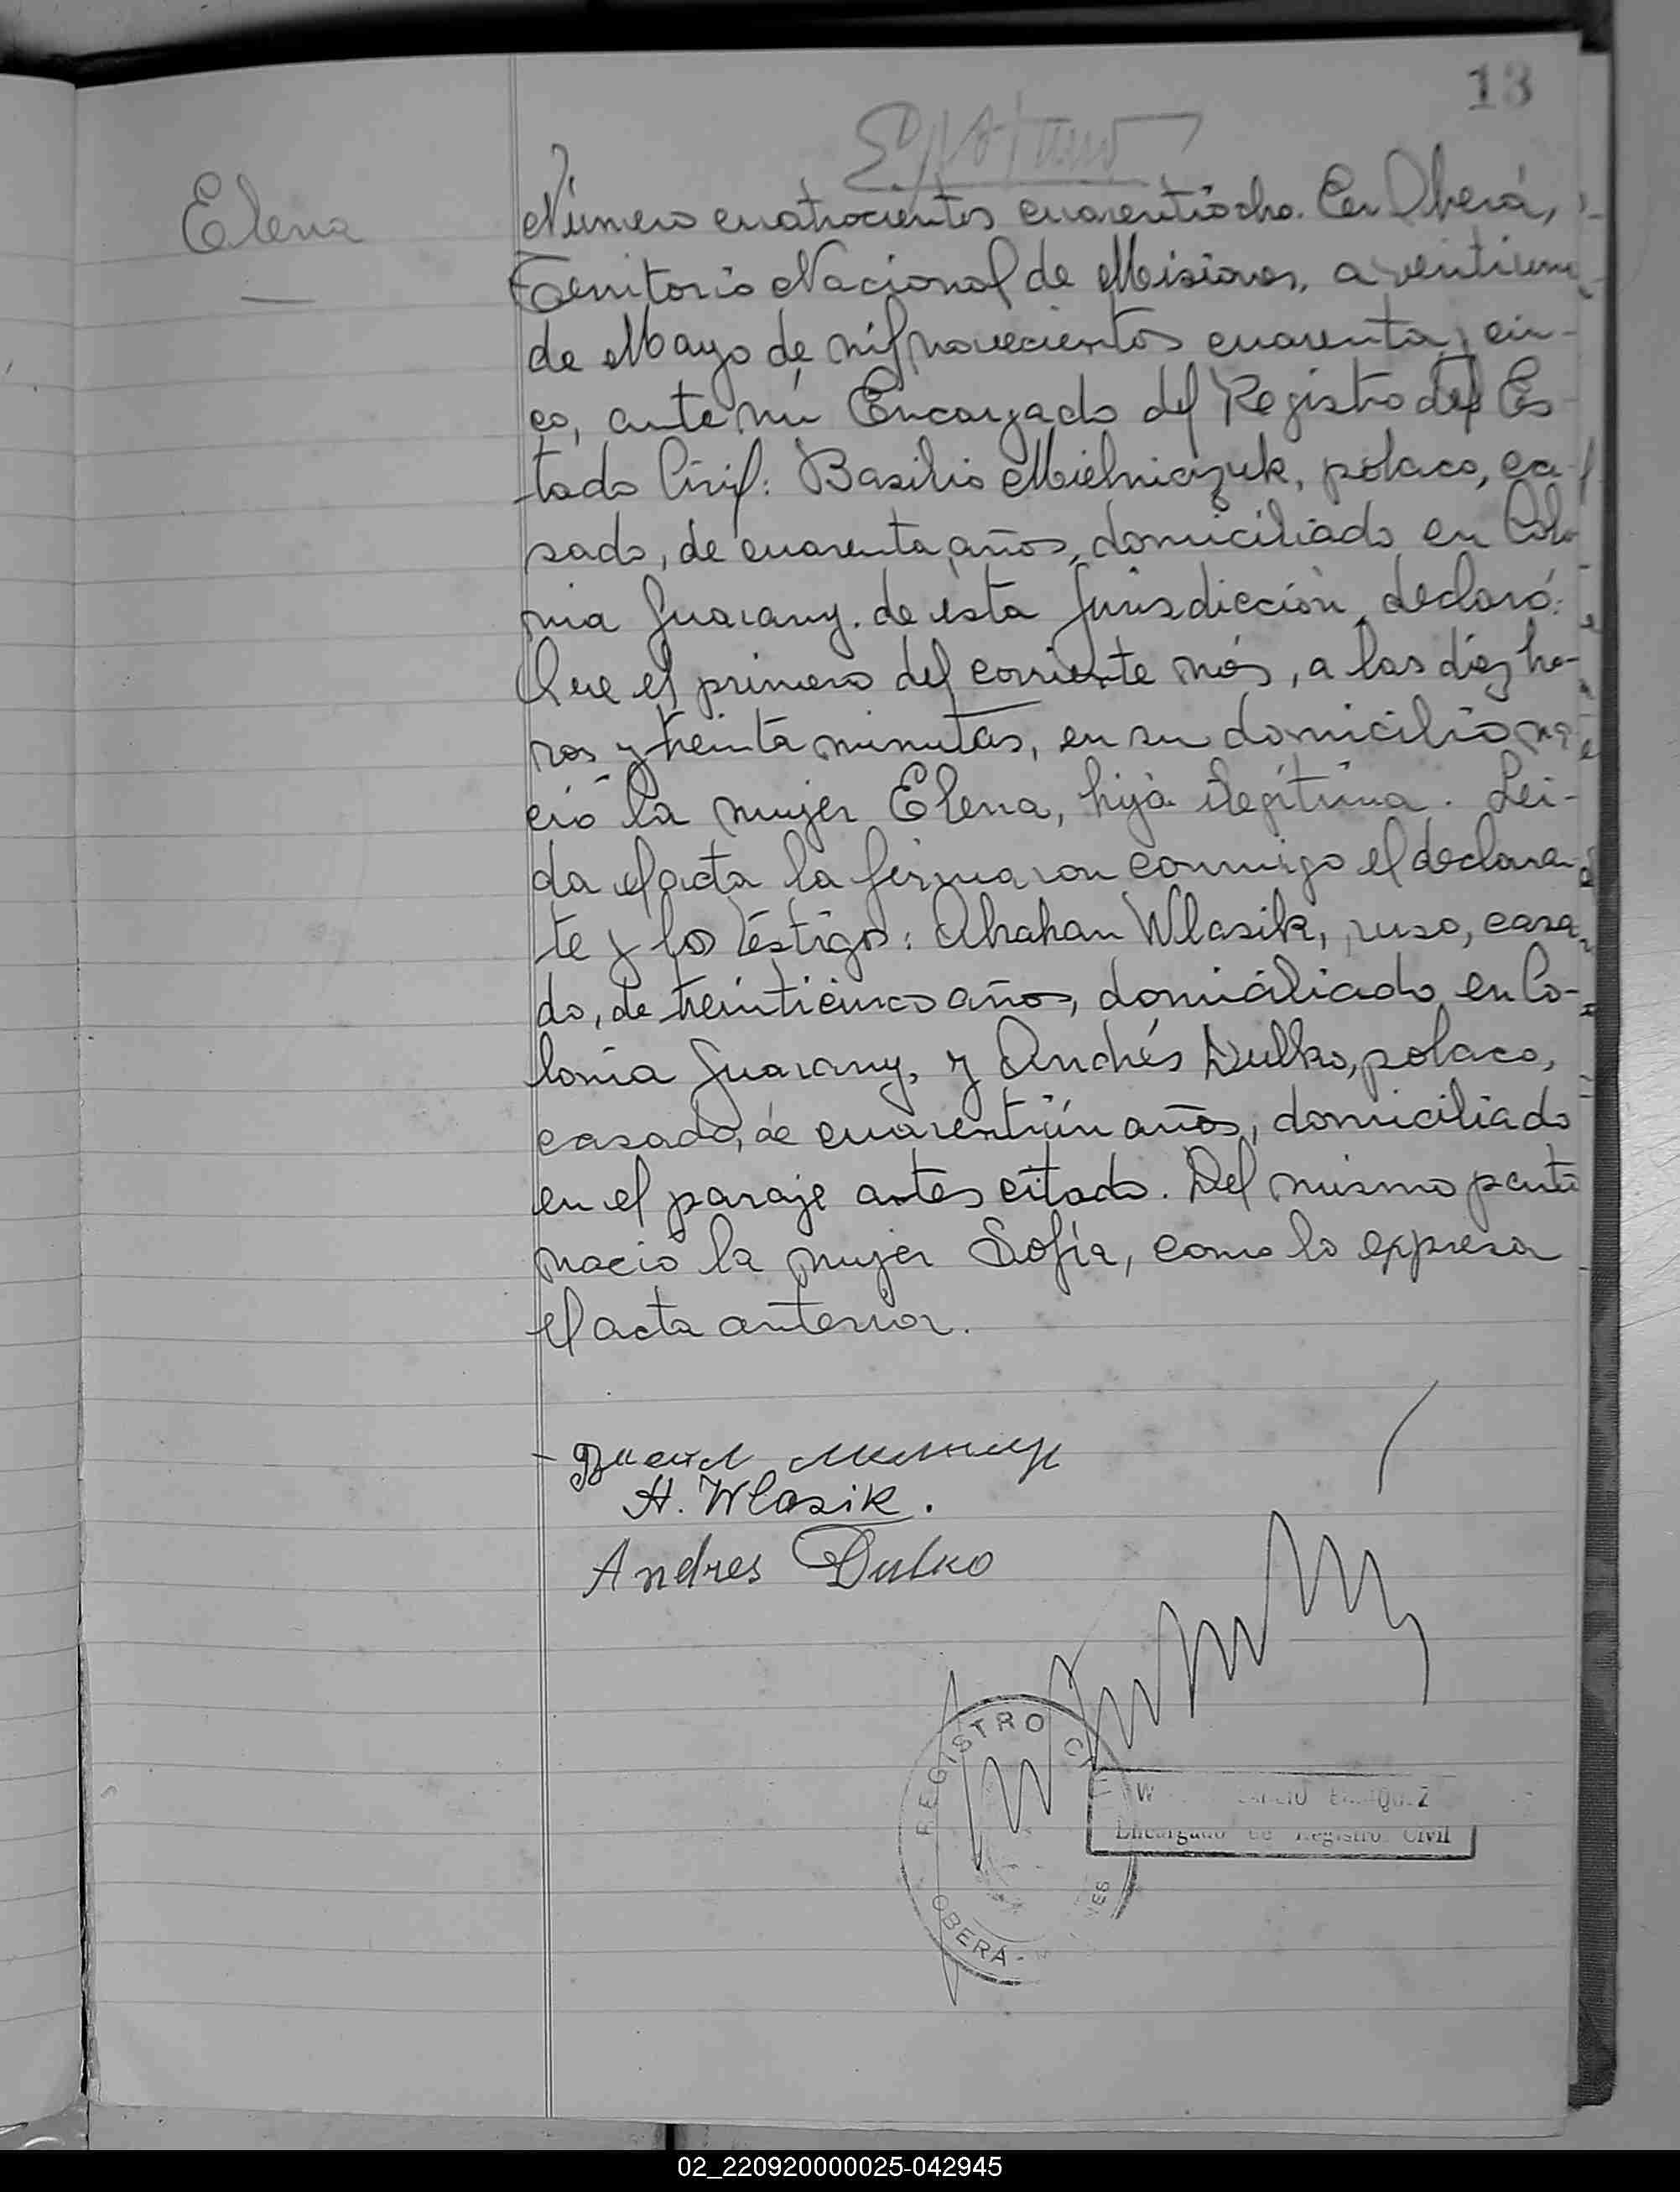 13
Elena
Número cuatrocientos cuarentiocho. En Oberá,
Territorio Nacional de Misiones, a veintiuno
de Mayo de mil novecientos cuarenta y cin-
co, ante mí Encargado del Registro del Es
tado Civil: Basilio Mielniczuk, polaco, ca-
sado, de cuarenta años, domiciliado en Colo
nia Guarany. de ésta Jurisdicción, declaró:
Que el primero del corriente més, a las diéz ho-
ras y treinta minutos, en su domicilio na
ció la mujer Elena, hija ilegítima. Lei-
da el acta la firmaron conmigo el declaran
te y los téstigos: Abahan Wlasik, ruso, casa
do, de treinticinco años, domiciliado en Co-
lonia Guarany, y Andrés Dulko, polaco,
casado, de cuarentiún años, domiciliado
en el paraje antes citado. Del mismo parto
nació la mujer Sofía, como lo expresa
el acta anterior.
A. Wlasik.
Andres Dulko
REGISTRO
OBERÁ -
Encargado de Registro Civil
02_220920000025-042945